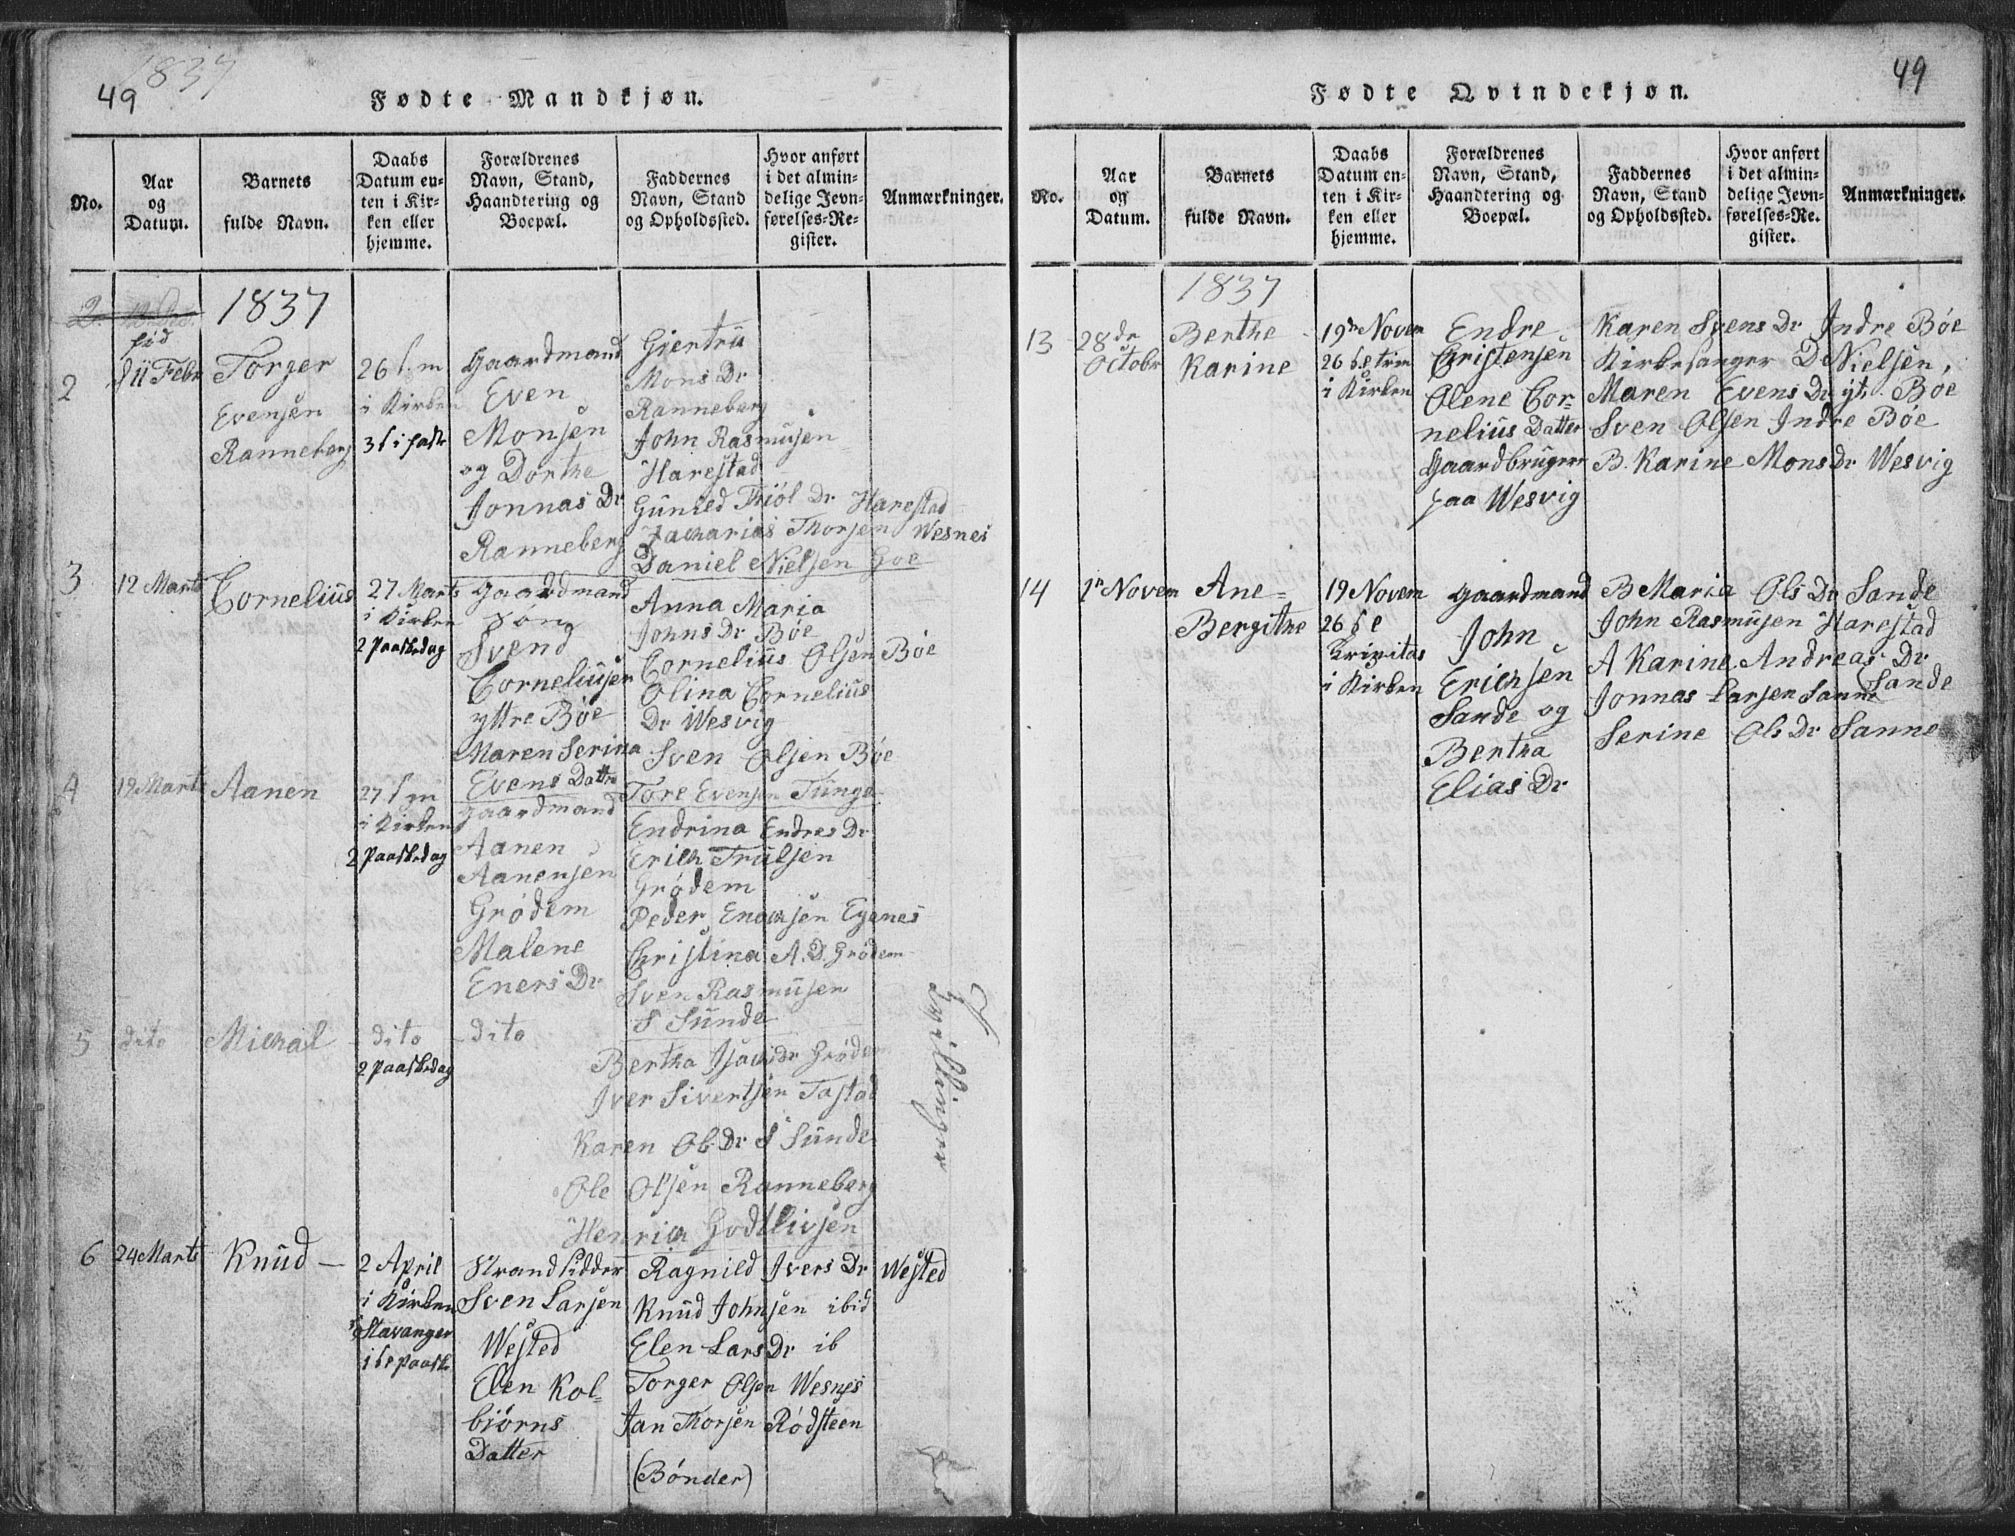 1837
49
Fødte Mandkjøn.
No.
Aar
og
Datum.
Barnets
fulde Navn.
Daabs
Datum en-
ten i Kir-
ken eller
hjemme.
Forældrenes
Navn, Stand,
Haandtering og
Boepæl.
Faddernes
Navn, Stand
og Opholdssted.
Hvor anført
i det almin-
delige Jevn-
førelses-Re-
gister.
Anmærkninger.
1837
2
fød
d 11 Febr
Torger
Evensen
Ranneberg
26 f. m
i Kirken
3 s i faste
Gaardmand
Even
Monsen
og Dorthe
Jonnas Dr
Ranneberg
Gjertru
Mons Dr
Ranneberg
John Rasmusen
Harestad
Gunild Thiol Dr Harestad
Zacharias Thorsen Wesnes
Daniel Nielsen Goe
3
12 Marts
Cornelius
27 Marts
i Kirken
2 Paaskedag
Gaardmand
Svend
Corneliusen
yttre Böe
Maren Serina
Evens Datter
Anna Maria
Johns Dr Böe
Cornelius Olsen Böe
Olina Cornelius
Dr Wesvig
Sven Olsen Böe
Tore Evensen Tunge
4
19 Marts
Aanen
27 f m
i Kirken
2 Paaskedag
Gaardmand
Aanen
Aanensen
Grödem
Malene
Eners Dr
Endrina Endres Dr
Erich Trulsen
Grödem
Peder Enochsen Eganes
Christina A. D. Grödem
Sven Rasmusen
S Sunde
5
dito
Michael
dito
2 Paaskedag
dito
Bertha Isachs Dr Gröde
Iver Sivertsen Tastad
Karen Ols Dr S Sunde
Ole Olsen Ranneberg
Henrich Godtlivsen
Tvillinger
6
24 Marts
Knud
2 April
i Kirken
Stavanger
1 s e Paaske
Strandsidder
Sven Larsen
Wested
Elen Kol-
biörns
Datter
Ragnild Ivers Dr Wested
Knud Johnsen ibid
Elen Lars Dr ib
Torger Olsen Wesnes
Jan Thorsen Rödsteen
(Bönder)
49
Fødte Qvindekjøn.
No.
Aar
og
Datum.
Barnets
fulde Navn.
Daabs
Datum en-
ten i Kir-
ken eller
hjemme.
Forældrenes
Navn, Stand,
Haandtering og
Boepæl.
Faddernes
Navn, Stand
og Opholdssted.
Hvor anført
i det almin-
delige Jevn-
førelses-Re-
gister.
Anmærkninger.
1837
13
28de
Octobr
Berthe
Karine
19de Novem
26 s. e trin
i Kirken
Endre
Christensen
Olene Cor-
nelius Datter
Gaardbruger
paa Wesvig
Karen Svens Dr Indre Böe
Kirkesanger D Nielsen,
Maren Evens Dr yt. Böe
Sven Olsen Indre Böe
B. Karine Mons Dr Wesvig
14
1n Novem
Ane
Bergithe
19 Novem
26 s e
trinitas
i Kirken
Gaardmand
John
Erichsen
Sande og
Bertha
Elias Dr
B Maria Ols Dr Sande
John Rasmusen Harestad
A Karine Andreas Dr
Sande
Jonnas Larsen Sanne
Serine Ols Dr Sanne